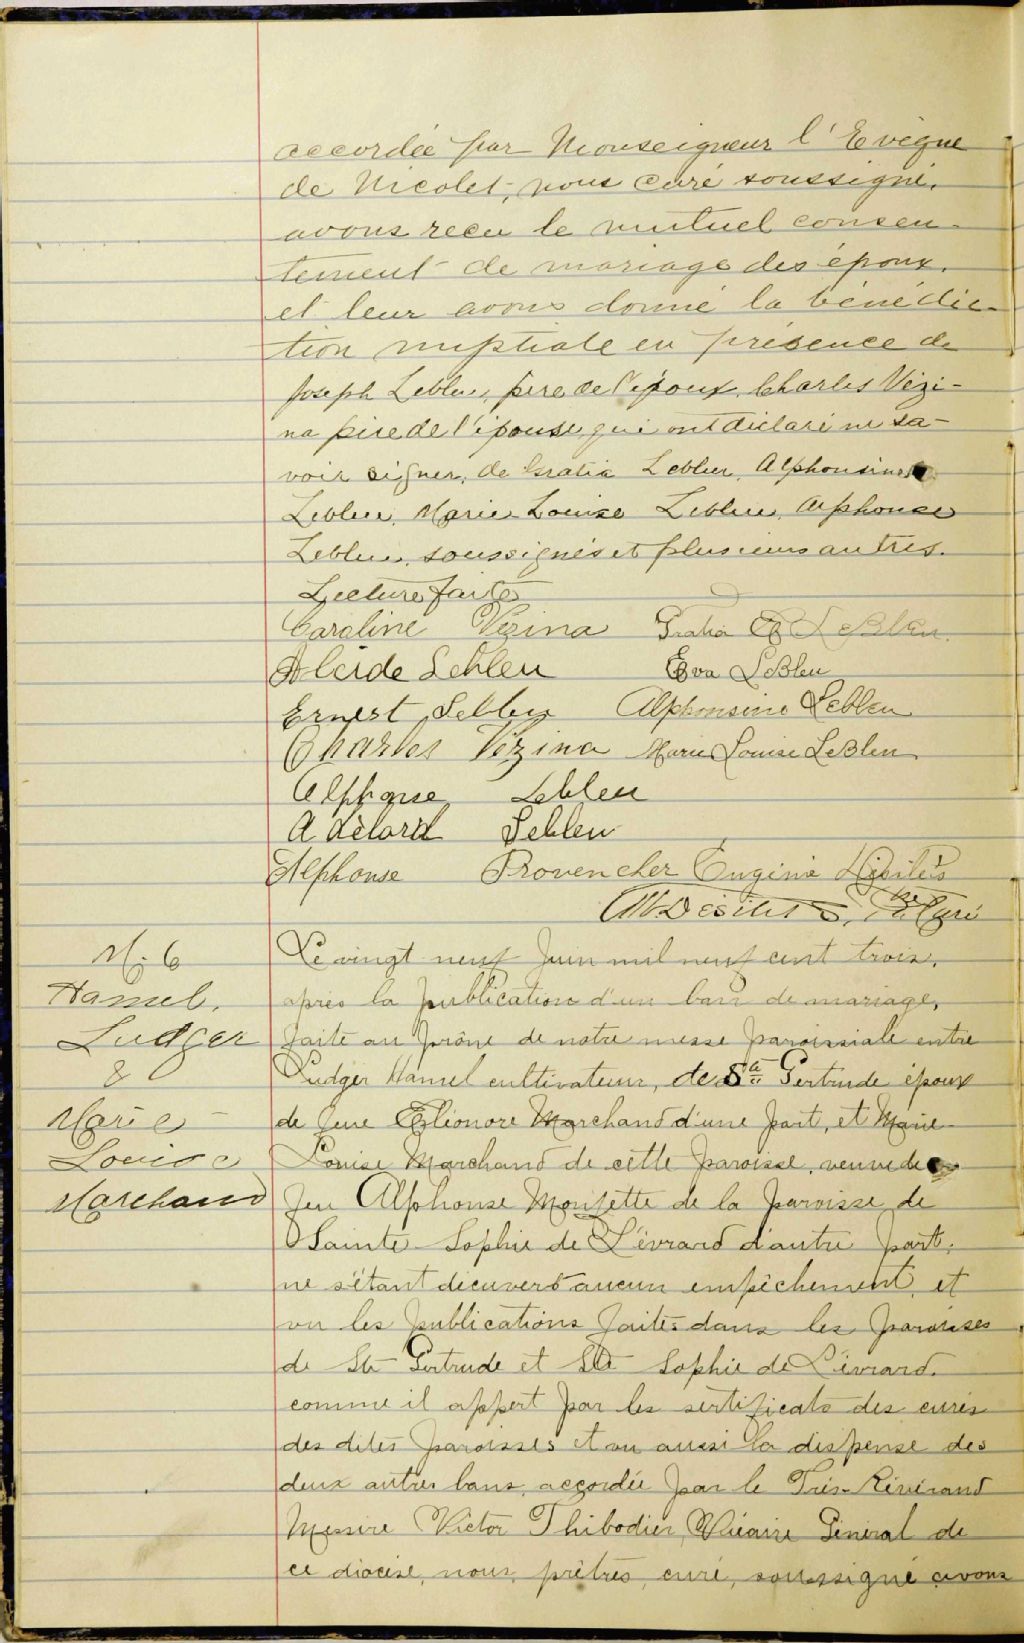 accordée par Monseigneur l'Evêque
de Nicolet, nous curé soussigné,
avons recu le mutuel consen-
tement de mariage des époux,
et leur avons donné la bénédic-
tion nuptiale en présence de
Joseph Lebleu, père de l'époux, Charles Vézi-
na père de l'épouse, qui ont déclaré ne sa-
voir signer, de Gratia Lebleu, Alphonsine
Lebleu, Marie Louise Lebleu, Alphonse
Lebleu, soussignés et plusieurs autres.
Lecture faite
Caroline Vézina Gratia LeBleu.
Alcide Lebleu Eva LeBleu
Ernest Lebleu Alphonsine Lebleu
Charles Vézina Marie Louise LeBleu
Alphonse Lebleu
Adélard Lebleu
Alphonse Provencher Eugénie Désilets
Désilets Ptre Curé
M. 6
Hamel,
Ludger
&
Marie-
Louise
Marchand
Le vingt-neuf Juin mil neuf cent trois,
après la publication d'un ban de mariage,
faite au prône de notre messe paroissiale entre
Ludger Hamel cultivateur, de Ste Gertrude époux
de feue Eléonore Marchand d'une part, et Marie-
Louise Marchand de cette paroisse, veuve de
feu Alphonse Monfette de la paroisse de
Sainte-Sophie de Lévrard d'autre part;
ne s'étant découvert aucun empêchement, et
vu les publications faites dans les paroisses
de Ste Gertrude et Ste Sophie de Lévrard.
comme il appert par les sertificats des curés
des dites paroisses et vu aussi la dispense des
deux autres bans, accordée par le Très-Révérand
Messire Victor Thibodier, Vicaire Général de
ce diocèse, nous, prêtres, curé, soussigné avons